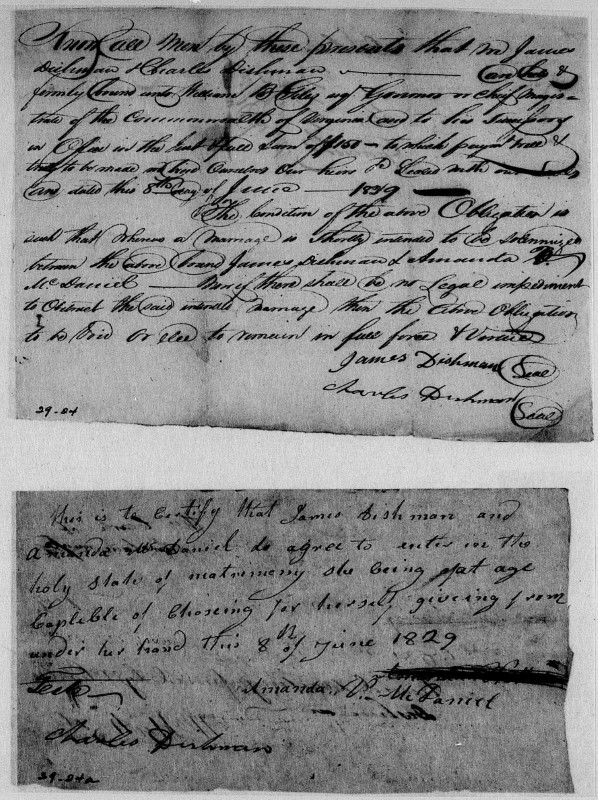 Know all men by these presents that we James
Dishman & Charles Dishman are held &
firmly bound unto William B Giles esq Governor or Chief Magis-
trate of the Commonwealth of Virginia and to his Successors
in office in the Just & full Sum of $150 - to which paymt well &
truly to be made we bind ourselves our heirs &c Sealed with our seals
and dated this 8th day of June 1829
The Condition of the above Obligation is
such that whereas a marriage is shortly intended to be solemnized
between the above bound James Dishman & Amanda V.
McDaniel Now if there shall be no Legal impediment
to Obstruct the said intended marriage then the above Obligation
to be Void or else to remain in full force & Virtue
James Dishman Seal
Charles Dishman Seal
29-84
this is to Certify that James Dishman and
Amanda McDaniel do agree to enter in the
holy state of matrimony she being of at age
Capleble of Choseing for herself giveing from
under her hand this 8th of June 1829
Teste
Amanda V. McDaniel
Charles Dishman
29-84a